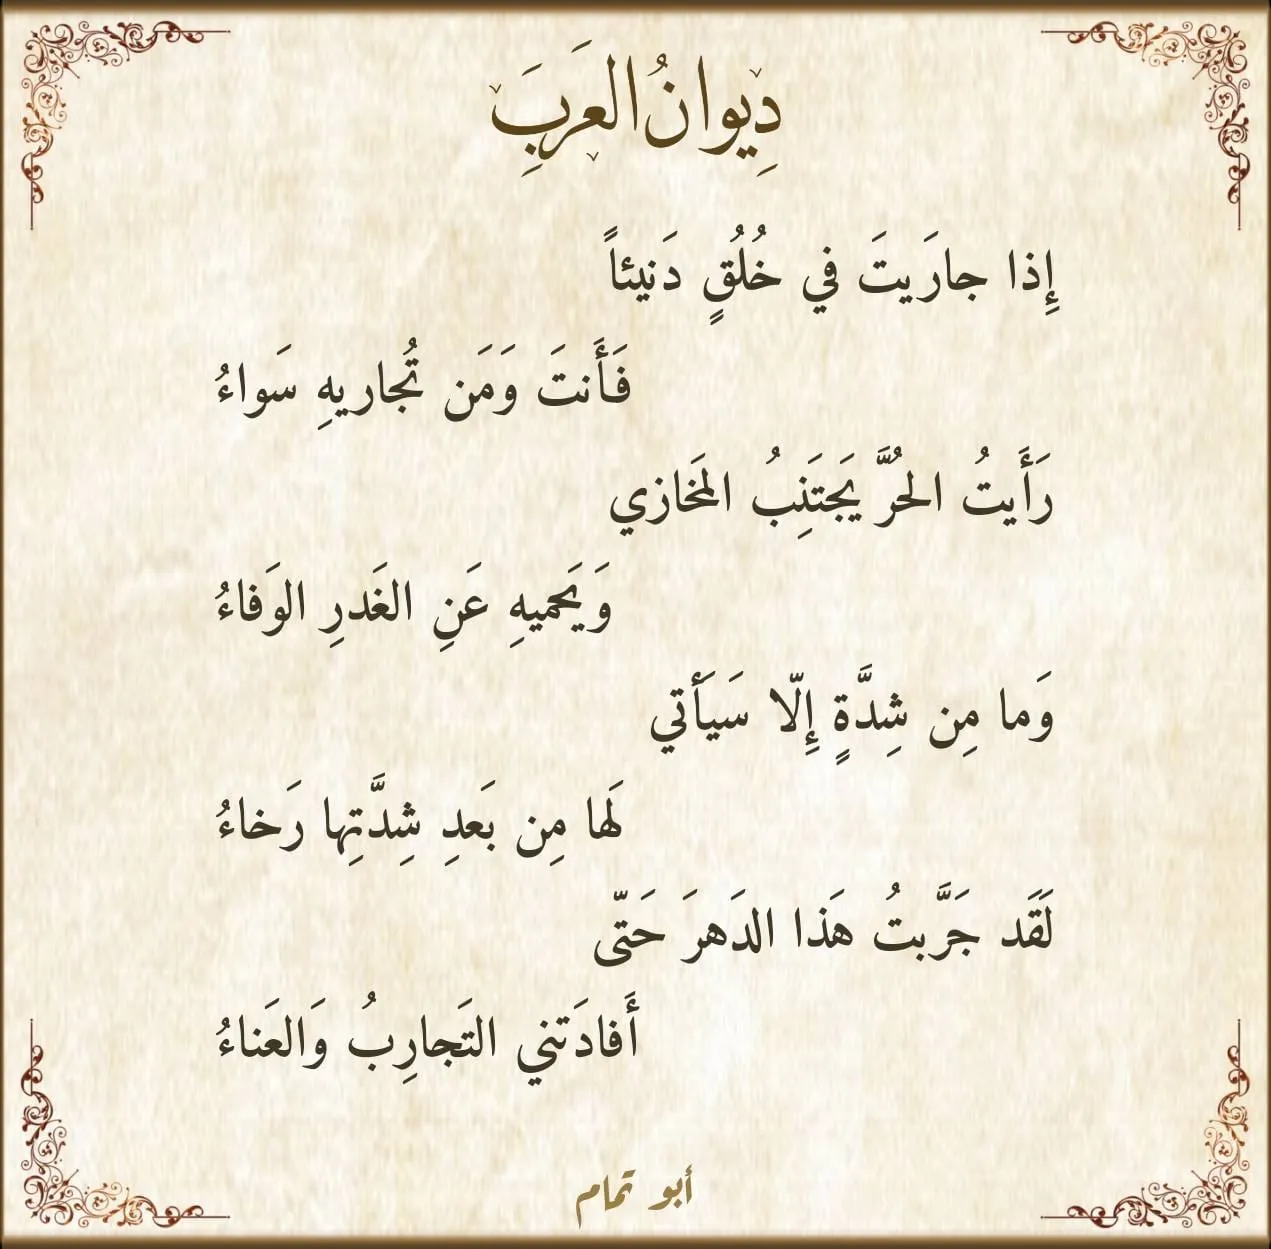 دِيوانُ العَرَبِ
إِذا جارَيتَ في خُلُقٍ دَنيئاً
فَأَنتَ وَمَن تُجاريهِ سَواءُ
رَأَيتُ الحُرَّ يَجتَنِبُ المَخازي
وَيَحميهِ عَنِ الغَدرِ الوَفاءُ
وَما مِن شِدَّةٍ إِلّا سَيَأتي
لَها مِن بَعدِ شِدَّتِها رَخاءُ
لَقَد جَرَّبتُ هَذا الدَهرَ حَتّى
أَفادَتني التَجارِبُ وَالعَناءُ
أبو تمام